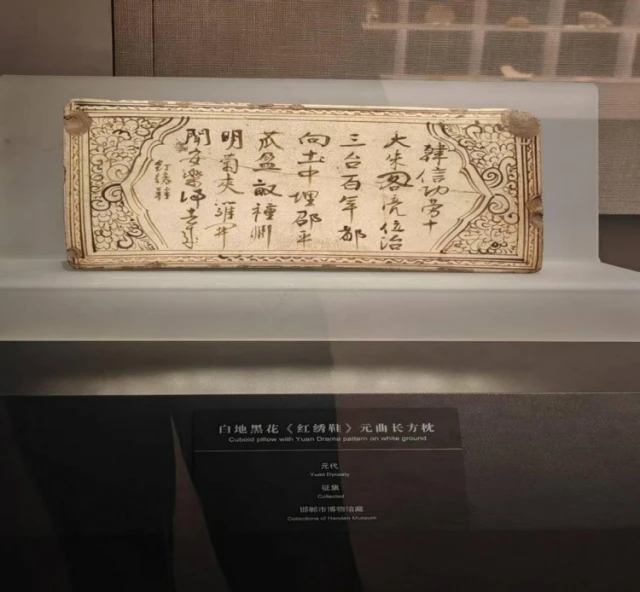 韓信功劳十
大朱阁亮位治
三台百年都
向土中埋邵平
瓜盈亩種渊
明菊夹羅开
闻安樂归去来
红绣鞋
白地黑花《红绣鞋》元曲长方枕
Cuboid pillow with Yuan Drama pattern on white ground
元代
Yuan Dynasty
征集
Collected
邯郸市博物馆藏
Collections of Handan Museum